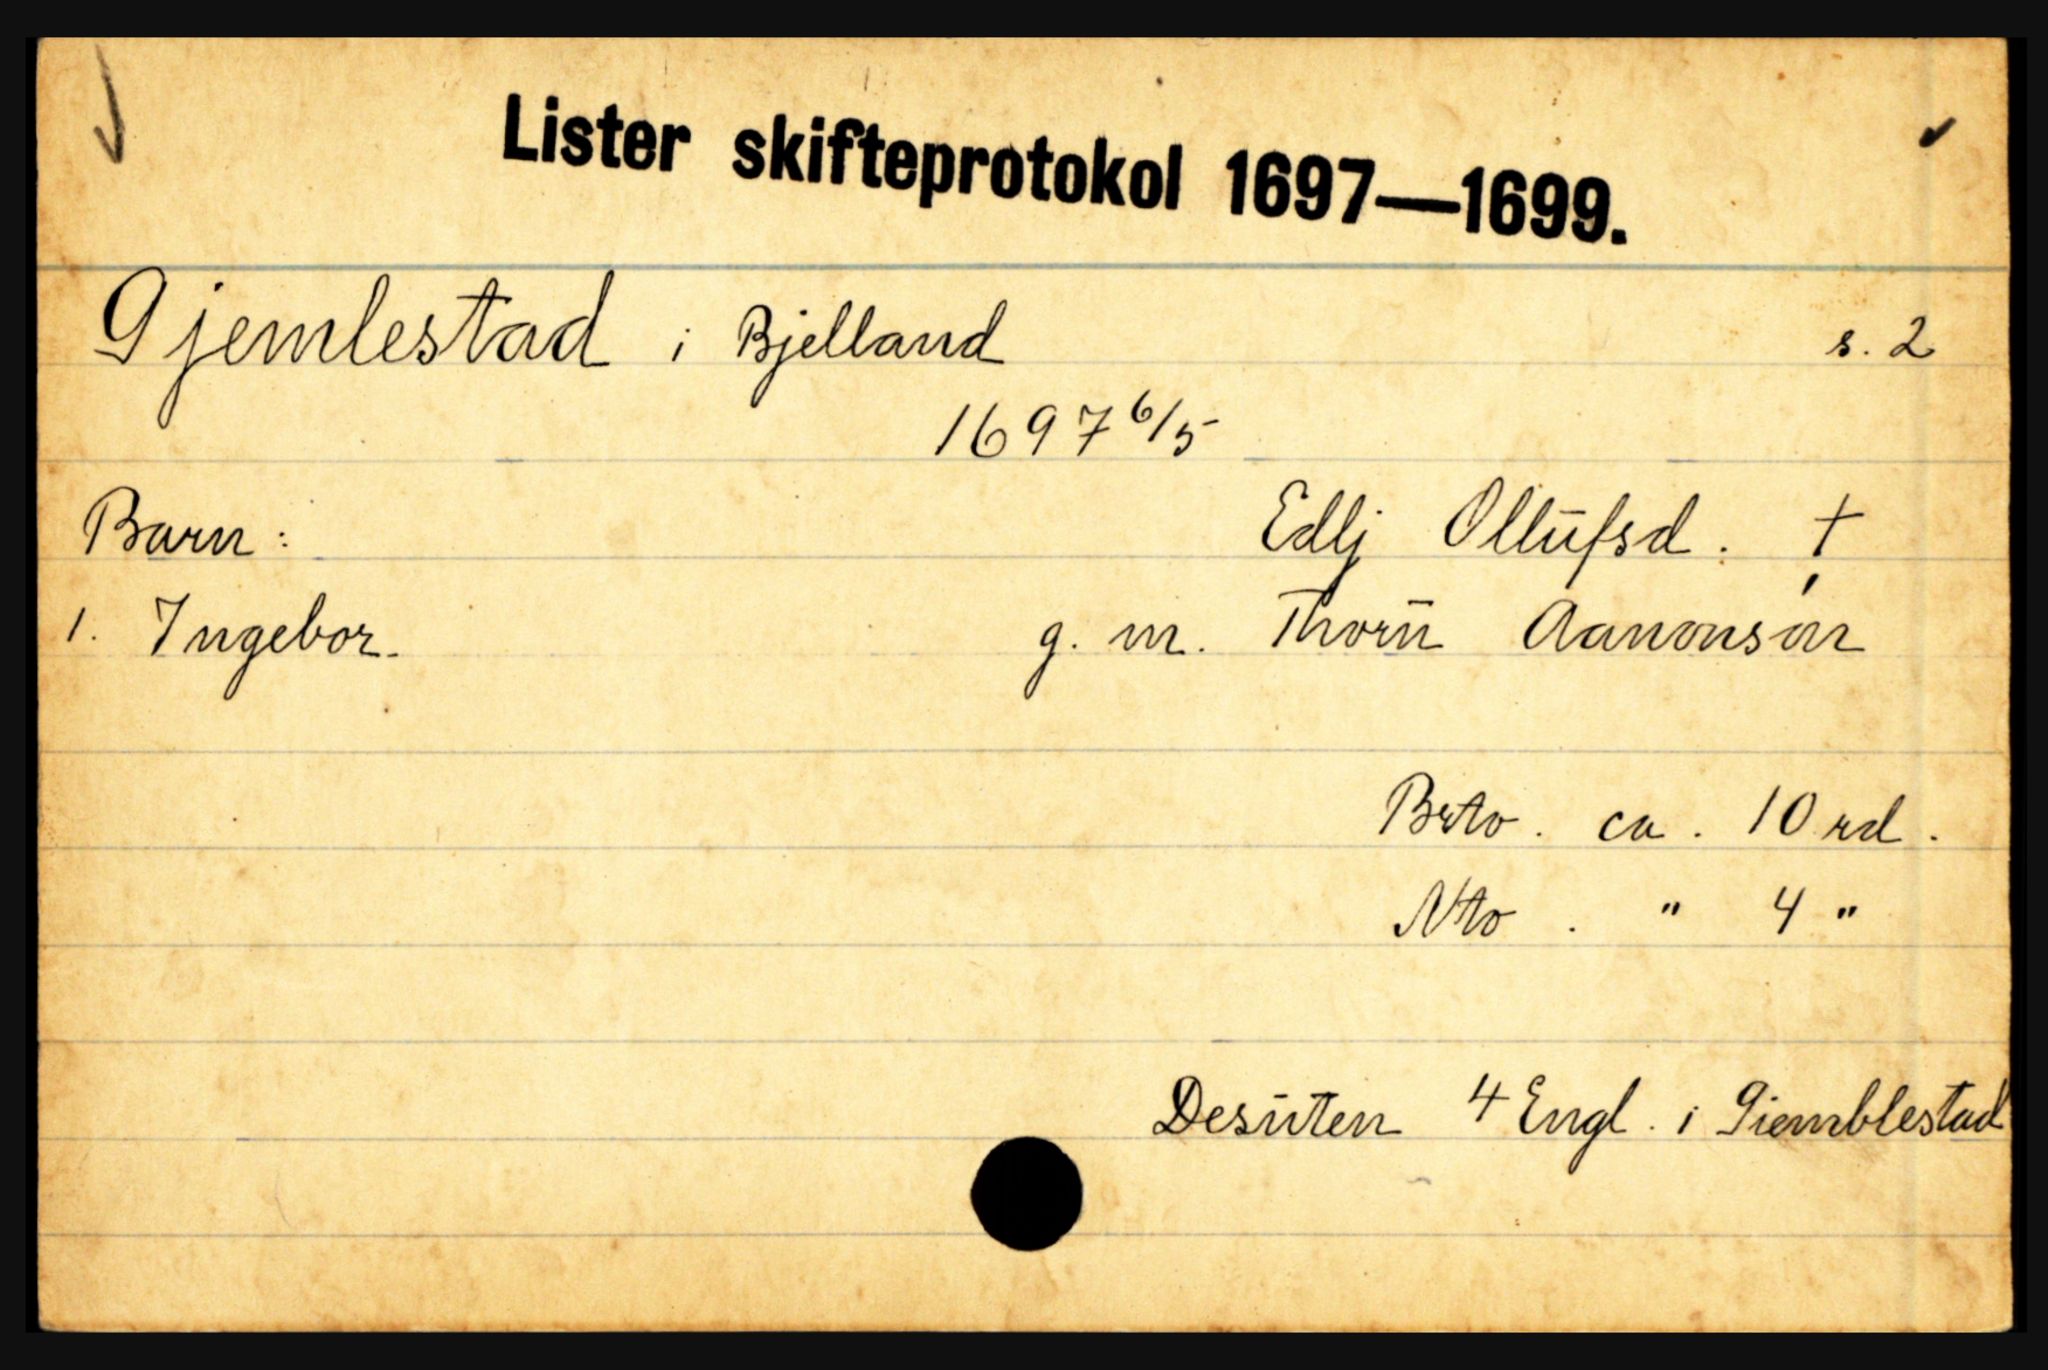 Lister skifteprotokol 1697—1699.
Gjemlestad i Bjelland s. 2
1697 6/5
Barn: Edlj Ollŭfsd. †
1. Ingebor. g. m. Thorŭ Aanonsøn
Brto. ca. 10 rd.
Nto. " 4 "
Desŭten 4 Engl. i Giemblestad